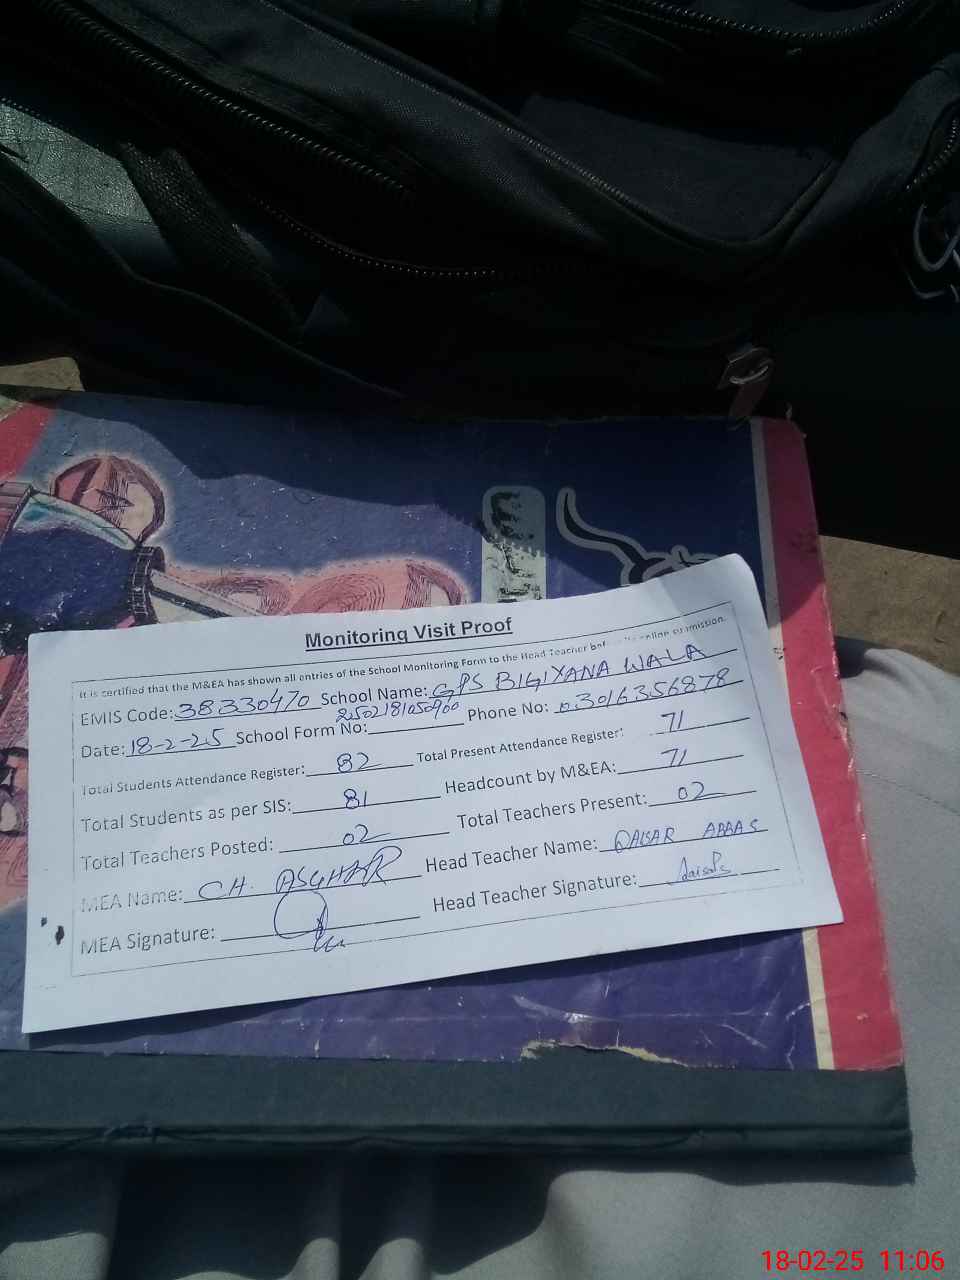 Monitoring Visit Proof
It is certified that the M&EA has shown all entries of the School Monitoring Form to the Head Teacher before online submission.
EMIS Code: 38330470 School Name: GPS BIGIYANA WALA
Date: 18-2-25 School Form No: 2502181050900 Phone No: 03016356878
Total Students Attendance Register: 82 Total Present Attendance Register: 71
Total Students as per SIS: 81 Headcount by M&EA: 71
Total Teachers Posted: 02 Total Teachers Present: 02
MEA Name: CH. ASGHAR Head Teacher Name: QAISAR ABBAS
MEA Signature: Head Teacher Signature:
18-02-25 11:06